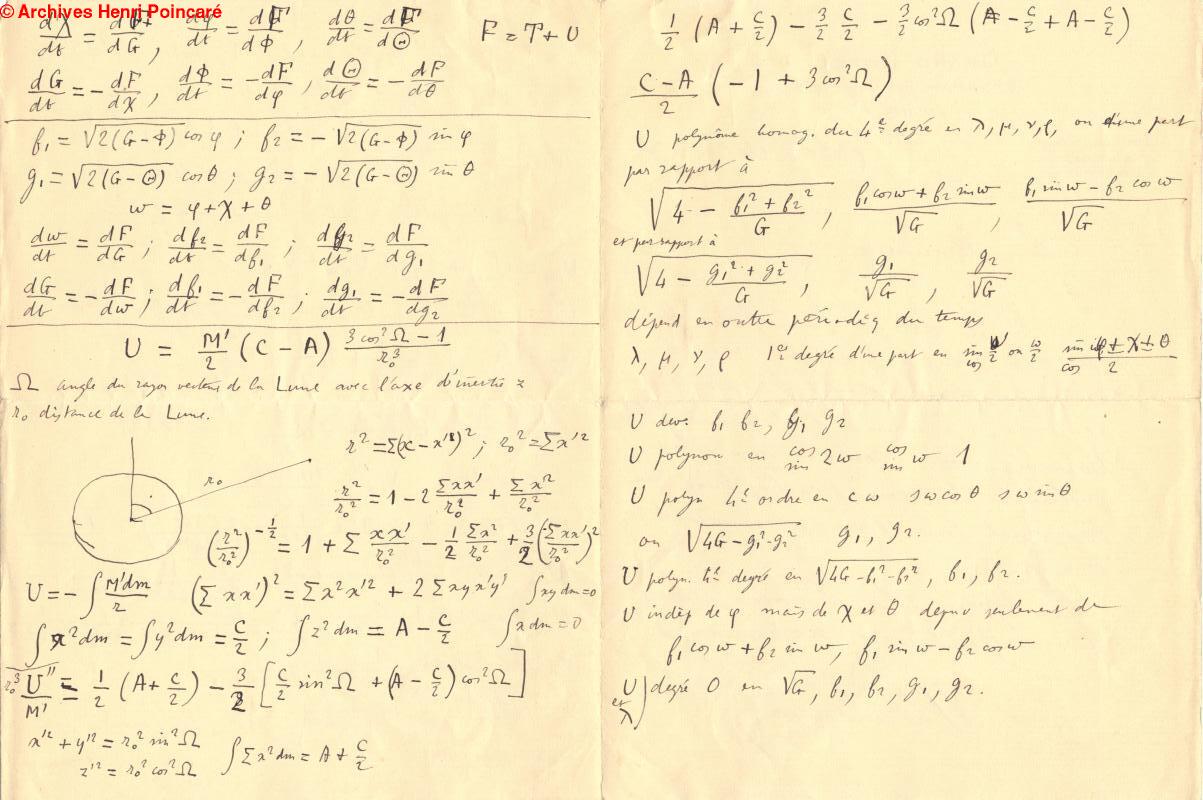 © Archives Henri Poincaré
dχ/dt = dF/dG, dφ/dt = dF/dΦ, dθ/dt = dF/dΘ F = T + U
dG/dt = −dF/dχ, dΦ/dt = −dF/dφ, dΘ/dt = −dF/dθ
f₁ = √2(G−Φ) cos φ ; f₂ = −√2(G−Φ) sin φ
g₁ = √2(G−Θ) cos θ ; g₂ = −√2(G−Θ) sin θ
w = φ + χ + θ
dw/dt = dF/dG ; df₂/dt = dF/df₁ ; dg₂/dt = dF/dg₁
dG/dt = −dF/dw ; df₁/dt = −dF/df₂ ; dg₁/dt = −dF/dg₂
U = M'/2 (C − A) (3 cos²Ω − 1)/r₀³
Ω angle du rayon vecteur de la Lune avec l'axe d'inertie z
r₀ distance de la Lune.
r₀
r² = Σ(x − x')² ; r₀² = Σx'²
r²/r₀² = 1 − 2 Σxx'/r₀² + Σx²/r₀²
(r²/r₀²)^−1/2 = 1 + Σ xx'/r₀² − 1/2 Σx²/r₀² + 3/2 (Σxx'/r₀²)²
U = −∫ M'dm/r (Σ xx')² = Σx²x'² + 2 Σxyx'y' ∫xy dm = 0
∫x²dm = ∫y²dm = C/2 ; ∫z²dm = A − C/2 ∫x dm = 0
r₀³ U''/M' = 1/2 (A + C/2) − 3/2 [C/2 sin²Ω + (A − C/2) cos²Ω]
x'² + y'² = r₀² sin²Ω
z'² = r₀² cos²Ω ∫Σx²dm = A + C/2
1/2 (A + C/2) − 3/2 C/2 − 3/2 cos²Ω (A − C/2 + A − C/2)
C − A/2 (−1 + 3 cos²Ω)
U polynôme homog. du 4e degré en λ, μ, ν, ρ, ou d'une part
par rapport à
√4 − f₁² + f₂²/G, f₁ cos w + f₂ sin w/√G, f₁ sin w − f₂ cos w/√G
et par rapport à
√4 − g₁² + g₂²/G, g₁/√G, g₂/√G
dépend en outre périodiq du temps
λ, μ, ν, ρ 1er degré d'une part en sin cos w/2 ou w/2 sin cos φ ± χ ± θ/2
U dev. f₁ f₂, g₁ g₂
U polynom en cos sin 2w cos sin w 1
U polyn 4e ordre en c w s w cos θ s w sin θ
ou √4G − g₁² − g₂² g₁, g₂.
U polyn. 4e degré en √4G − f₁² − f₂², f₁, f₂.
U indép de φ mais de χ et θ seulement de
f₁ cos w + f₂ sin w, f₁ sin w − f₂ cos w
U et λ) degré 0 en √G, f₁, f₂, g₁, g₂.